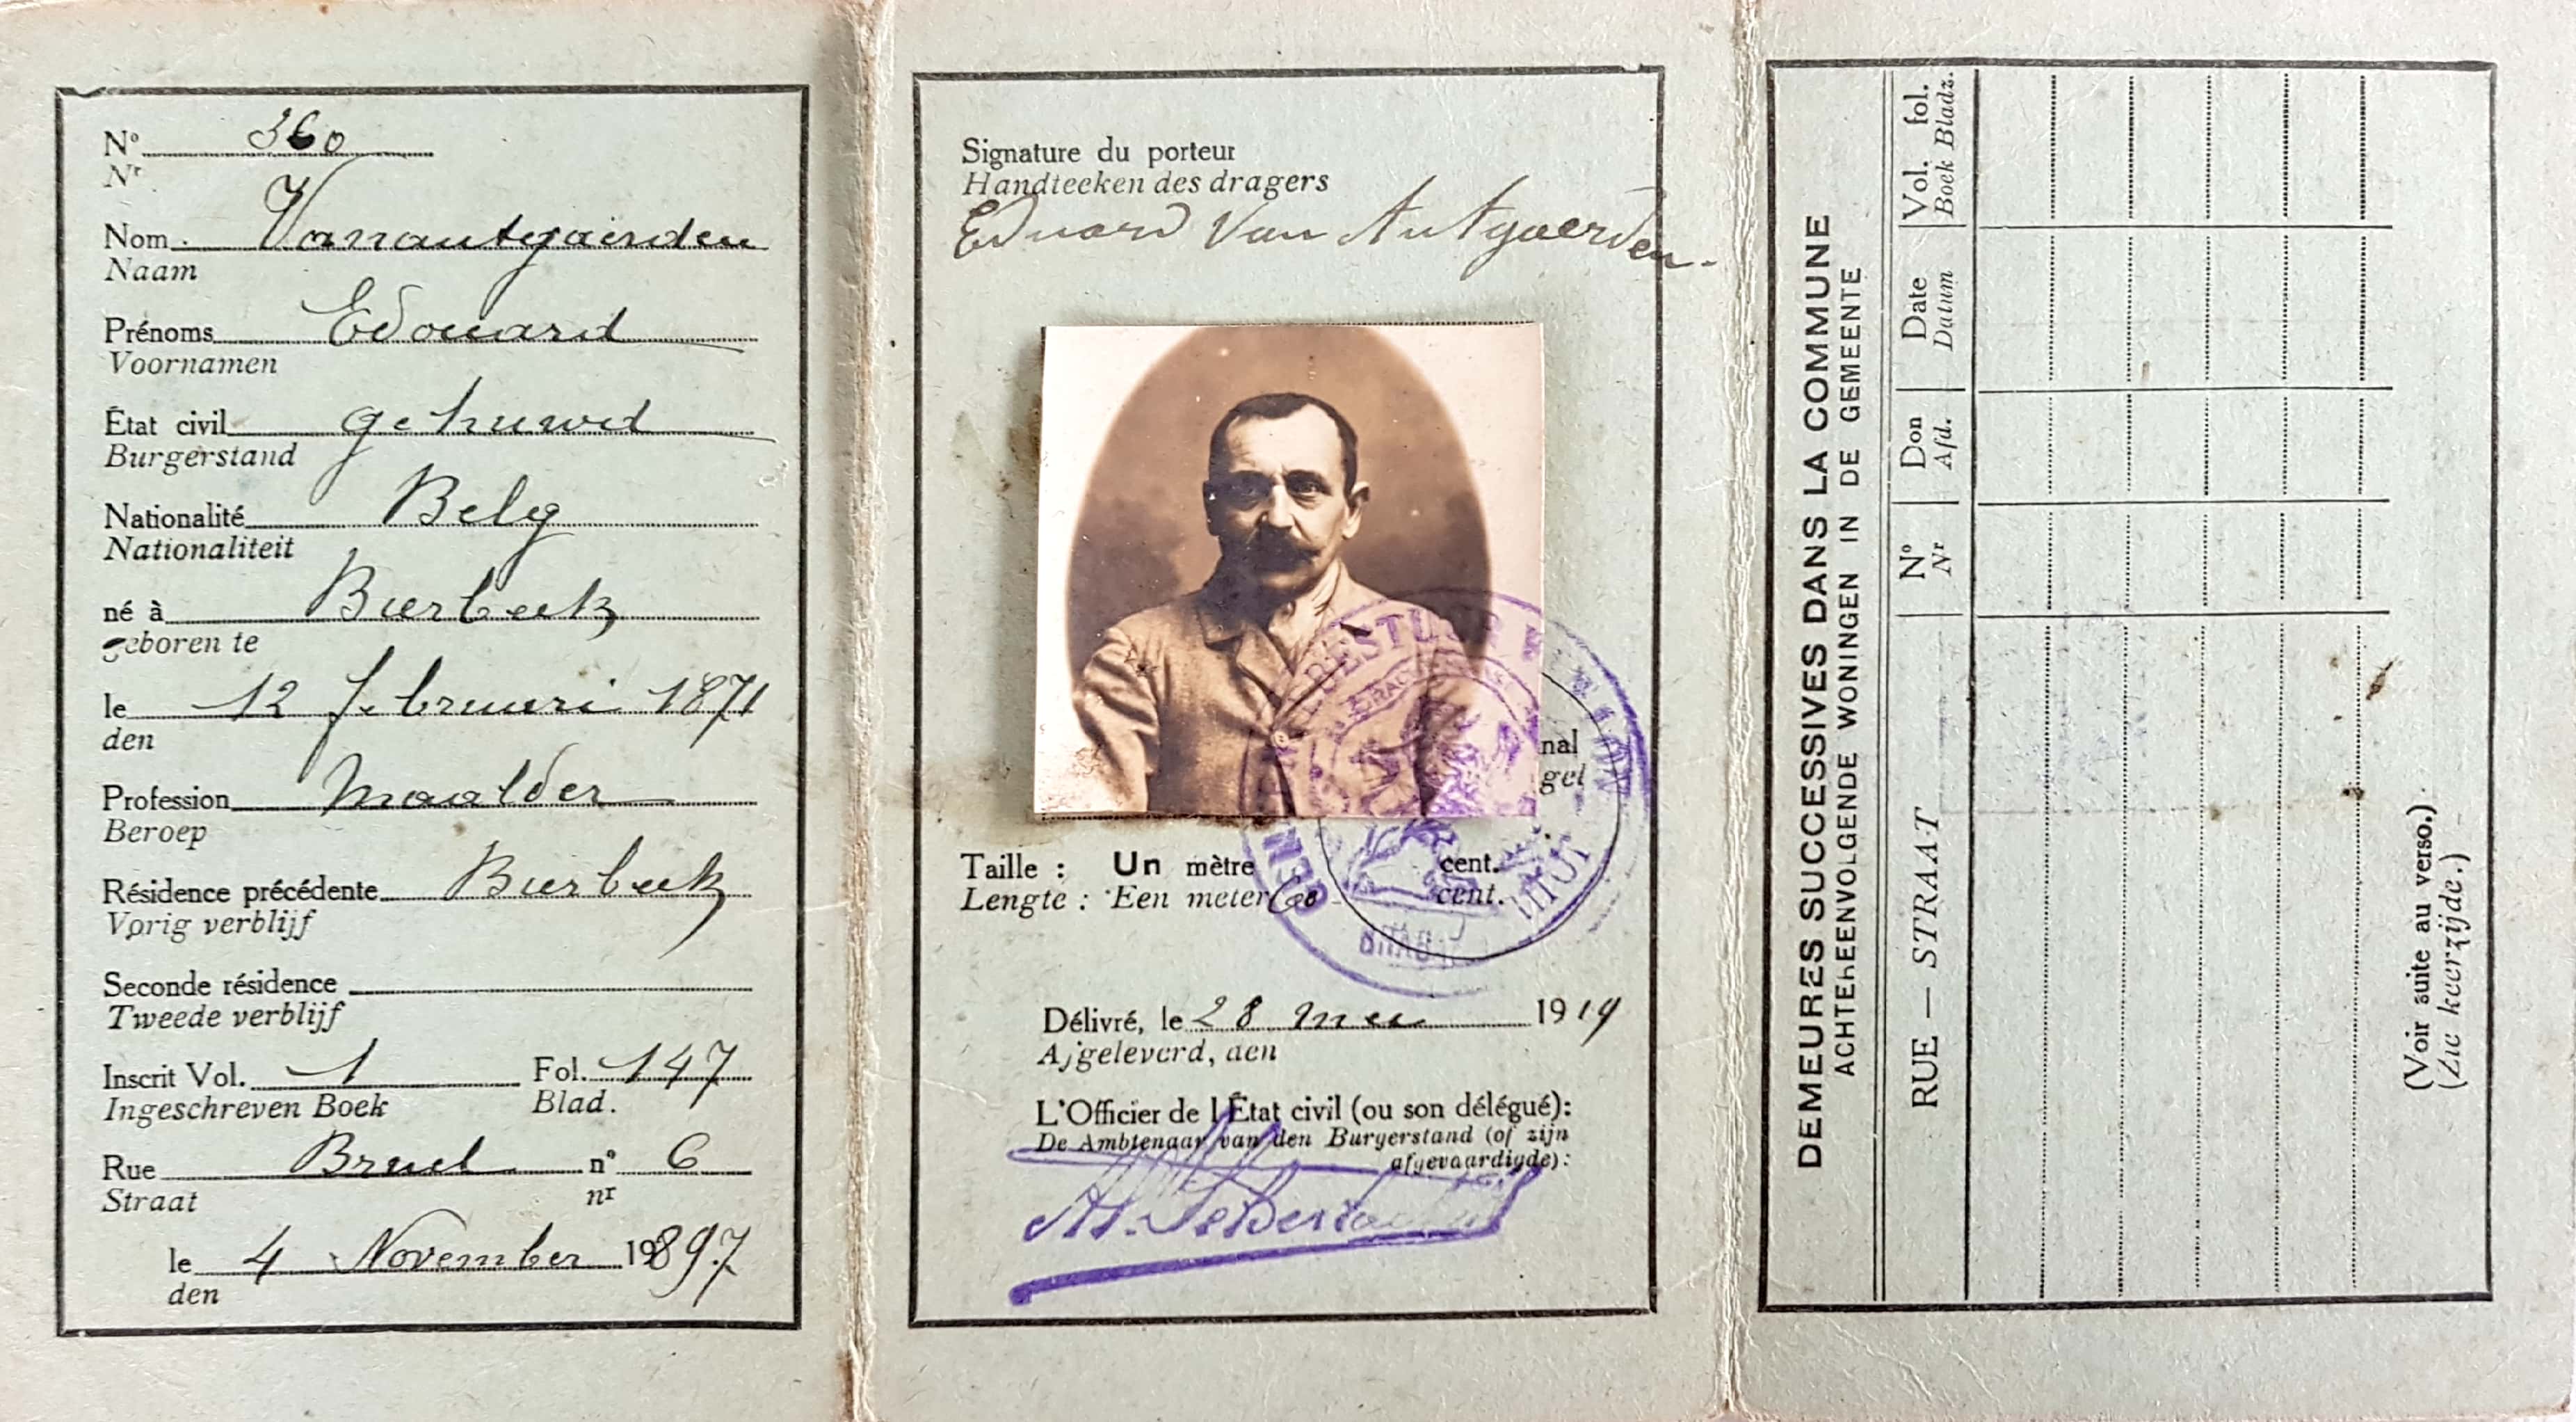 Nº 360
Nr
Nom Vanautgaerden
Naam
Prénoms Edouard
Voornamen
État civil gehuwd
Burgerstand
Nationalité Belg
Nationaliteit
né à Bierbeek
geboren te
le 12 februari 1871
den
Profession Maalder
Beroep
Résidence précédente Bierbeek
Vorig verblijf
Seconde résidence
Tweede verblijf
Inscrit Vol. 1 Fol. 147
Ingeschreven Boek Blad.
Rue Bruel nº 6
Straat nr
le 4 November 1897
den
Signature du porteur
Handteeken des dragers
Eduard Van Autgaerden.
nal
gel
BESTUUR
Taille : Un mètre cent.
Lengte : Een meter 60 cent.
Délivré, le 28 mei 1919
Afgeleverd, den
L'Officier de l'État civil (ou son délégué):
De Ambtenaar van den Burgerstand (of zijn
afgevaardigde):
DEMEURES SUCCESSIVES DANS LA COMMUNE
ACHTEREENVOLGENDE WONINGEN IN DE GEMEENTE
RUE — STRAAT Nº Don Date Vol. fol.
Nr Afd. Datum Boek Bladz.
(Voir suite au verso.)
(Zie keerzijde.)